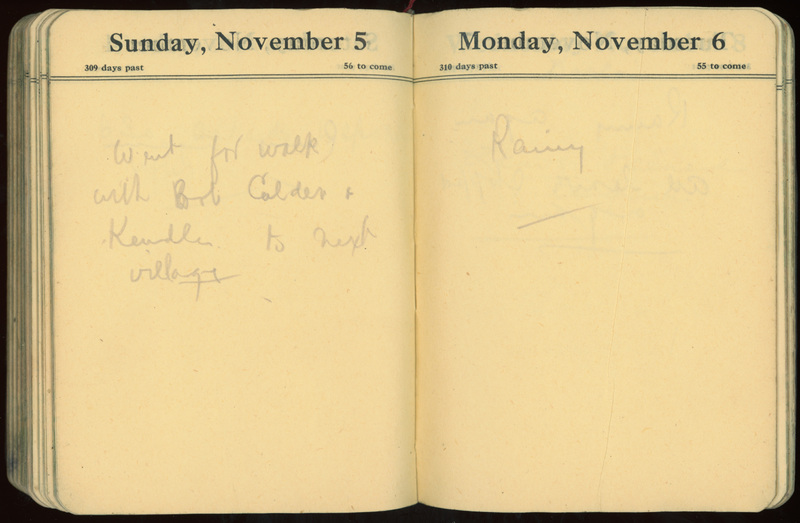 Sunday, November 5
309 days past 56 to come
Went for walk
with Bob Calder +
to next
village
Monday, November 6
310 days past 55 to come
Rainy